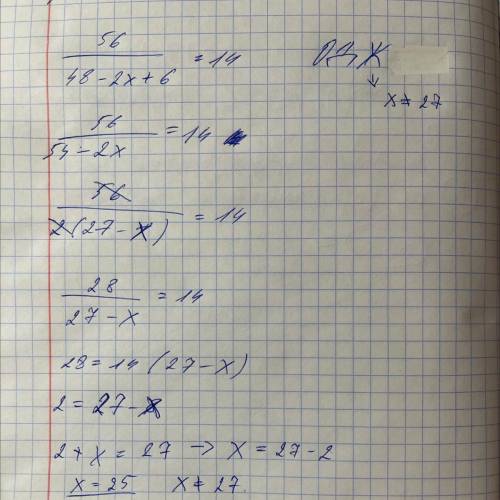 56 / (48 - 2x + 6) = 14
ОДЖ
↓
x ≠ 27
56 / (54 - 2x) = 14
56 / (2(27 - x)) = 14
28 / (27 - x) = 14
28 = 14 (27 - x)
2 = 27 - x
2 + x = 27 → x = 27 - 2
x = 25 x ≠ 27